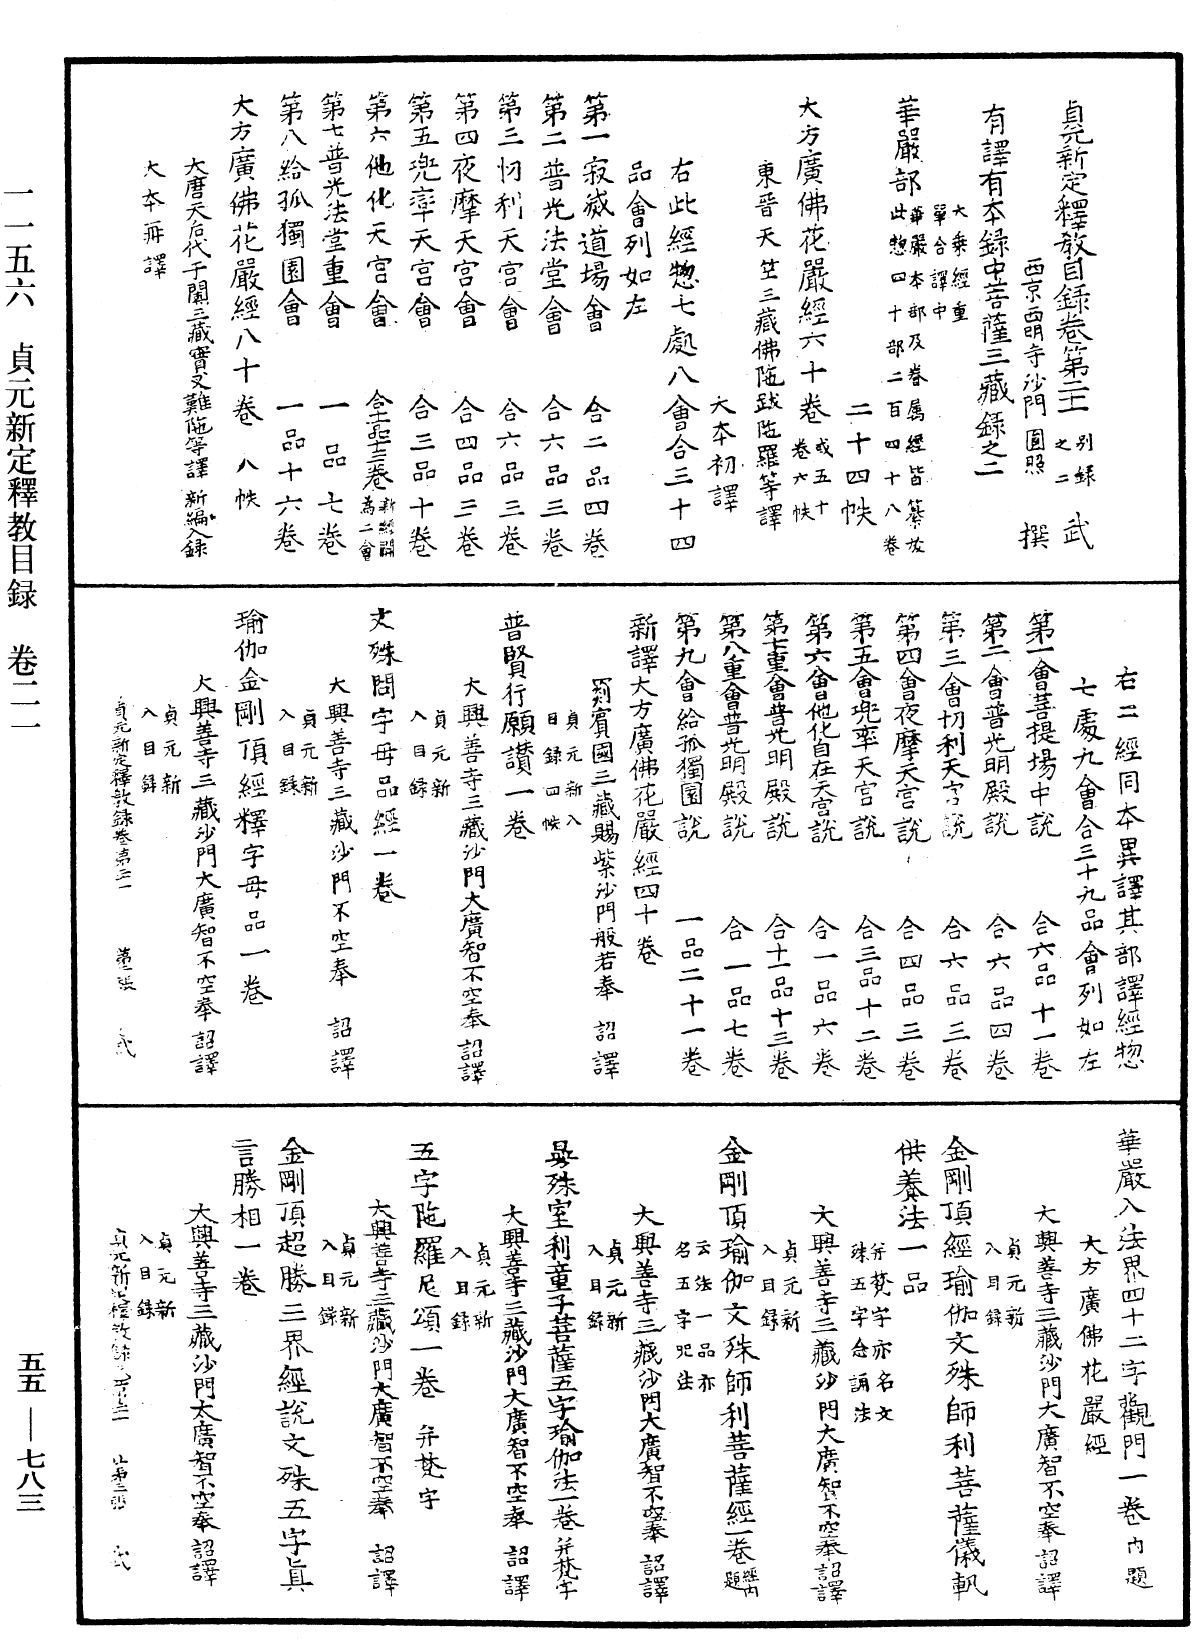 貞元新定釋教目録卷第二十一 別録之二 武
西京西明寺沙門圓照 撰
有譯有本録中菩薩三藏録之二
華嚴部 大乘經重單合譯中華嚴本部及眷属經皆纂於此惣四十部二百四十八卷 二十四帙
大方廣佛花嚴經六十卷 或五十卷六帙
東晉天竺三藏佛陁跋陁羅等譯
大本初譯
右此經惣七處八會合三十四
品會列如左
第一寂滅道場會 合二品四卷
第二普光法堂會 合六品三卷
第三忉利天宫會 合六品三卷
第四夜摩天宫會 合四品三卷
第五兜率天宫會 合三品十卷
第六他化天宫會 合十一品十三卷 新經開為二會
第七普光法堂重會 一品七卷
第八給孤獨園會 一品十六卷
大方廣佛花嚴經八十卷 八帙
大唐天后代于闐三藏實叉難陁等譯 新編入録
大本再譯
右二經同本異譯其部譯經惣
七處九會合三十九品會列如左
第一會菩提場中說 合六品十一卷
第二會普光明殿說 合六品四卷
第三會忉利天宫說 合六品三卷
第四會夜摩天宫說 合四品三卷
第五會兜率天宫說 合三品十二卷
第六會他化自在天宫說 合一品六卷
第七重會普光明殿說 合十一品十三卷
第八重會普光明殿說 合一品七卷
第九會給孤獨園說 一品二十一卷
新譯大方廣佛花嚴經四十卷
罽賓國三藏賜紫沙門般若奉 詔譯
貞元新入目録四帙
普賢行願讃一卷
大興善寺三藏沙門大廣智不空奉 詔譯
貞元新入目録
文殊問字母品經一卷
大興善寺三藏沙門不空奉 詔譯
貞元新入目録
瑜伽金剛頂經釋字母品一卷
大興善寺三藏沙門大廣智不空奉 詔譯
貞元新入目録
貞元新定釋教録卷第二十一 第二張 武
華嚴入法界四十二字觀門一卷 内題
大方廣佛花嚴經
大興善寺三藏沙門大廣智不空奉 詔譯
貞元新入目録
金剛頂經瑜伽文殊師利菩薩儀軌
供養法一品 并梵字亦名文殊五字念誦法
大興善寺三藏沙門大廣智不空奉 詔譯
貞元新入目録
金剛頂瑜伽文殊師利菩薩經一卷 經内題云法一品亦名五字呪法
大興善寺三藏沙門大廣智不空奉 詔譯
貞元新入目録
曼殊室利童子菩薩五字瑜伽法一卷 并梵字
大興善寺三藏沙門大廣智不空奉 詔譯
貞元新入目録
五字陁羅尼頌一卷 并梵字
大興善寺三藏沙門大廣智不空奉 詔譯
貞元新入目録
金剛頂超勝三界經說文殊五字真
言勝相一卷
大興善寺三藏沙門大廣智不空奉 詔譯
貞元新入目録
一一五六 貞元新定釋教目録 卷二一
五五—七八三